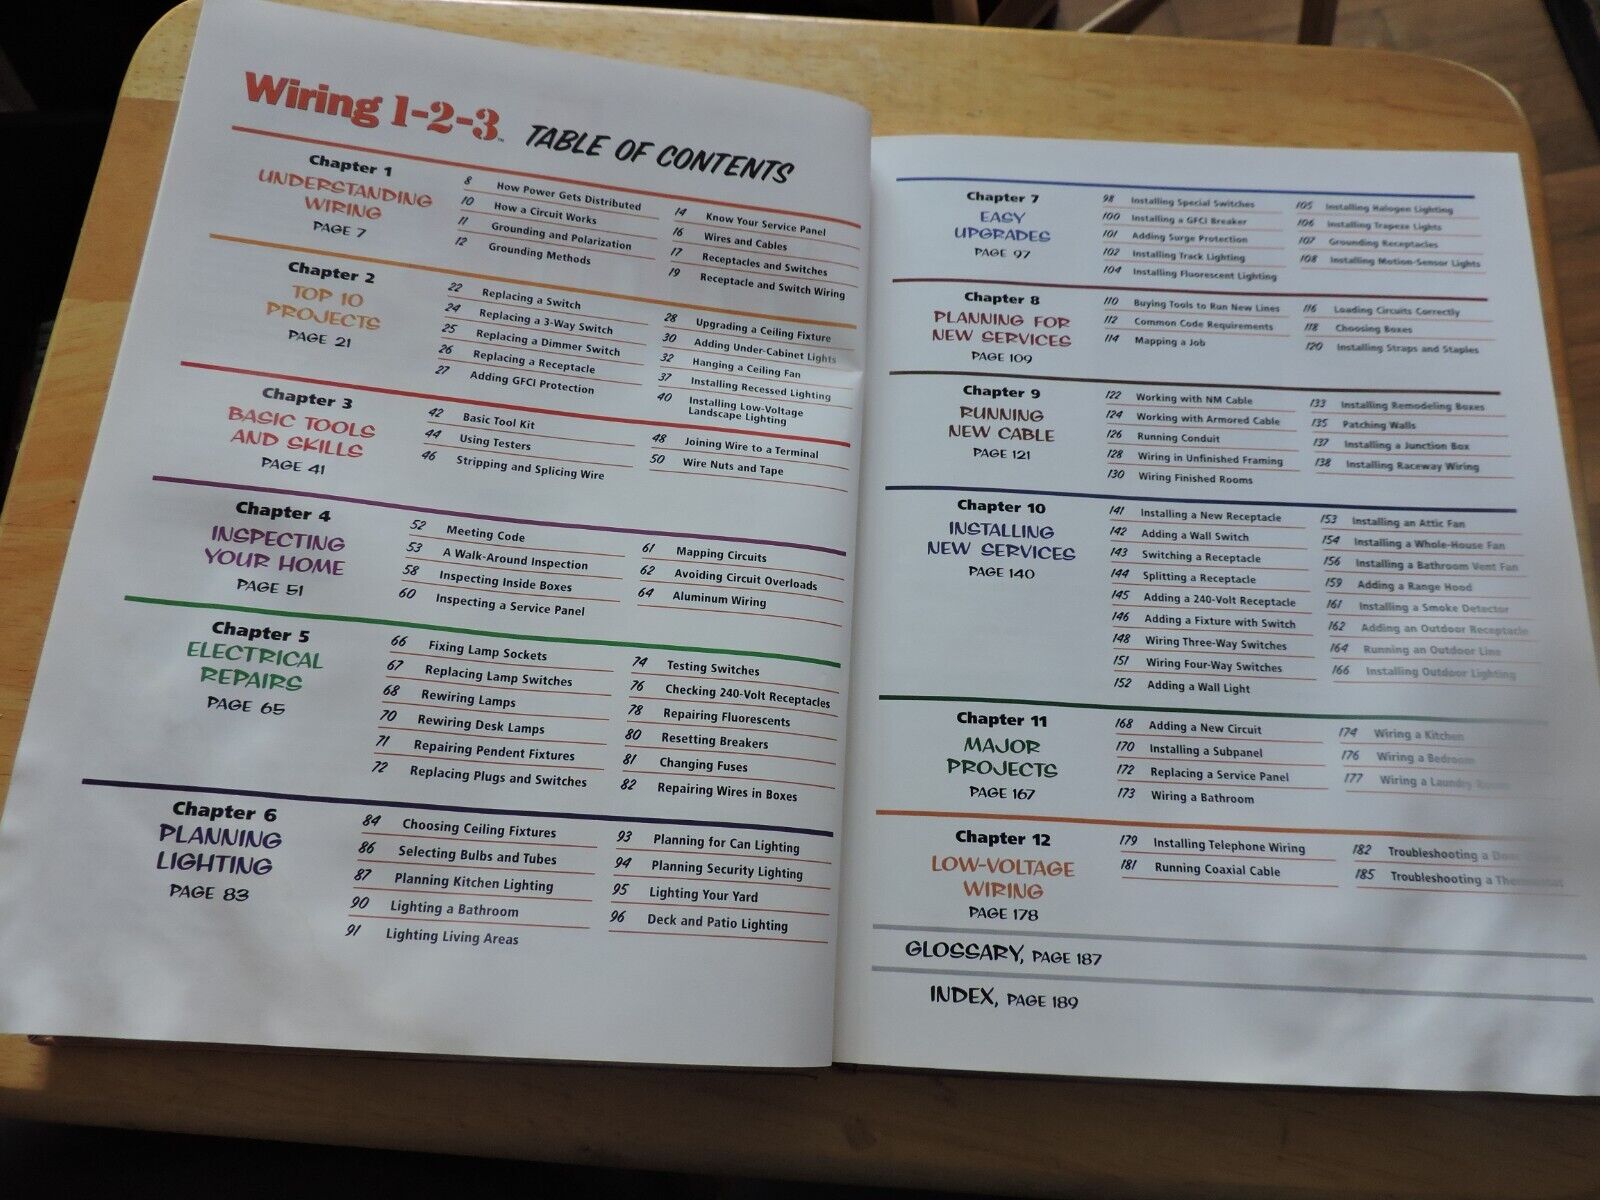 Wiring 1-2-3™ TABLE OF CONTENTS
Chapter 1
UNDERSTANDING
WIRING
PAGE 7
8 How Power Gets Distributed
10 How a Circuit Works
11 Grounding and Polarization
12 Grounding Methods
14 Know Your Service Panel
16 Wires and Cables
17 Receptacles and Switches
19 Receptacle and Switch Wiring
Chapter 2
TOP 10
PROJECTS
PAGE 21
22 Replacing a Switch
24 Replacing a 3-Way Switch
25 Replacing a Dimmer Switch
26 Replacing a Receptacle
27 Adding GFCI Protection
28 Upgrading a Ceiling Fixture
30 Adding Under-Cabinet Lights
32 Hanging a Ceiling Fan
37 Installing Recessed Lighting
40 Installing Low-Voltage
Landscape Lighting
Chapter 3
BASIC TOOLS
AND SKILLS
PAGE 41
42 Basic Tool Kit
44 Using Testers
46 Stripping and Splicing Wire
48 Joining Wire to a Terminal
50 Wire Nuts and Tape
Chapter 4
INSPECTING
YOUR HOME
PAGE 51
52 Meeting Code
53 A Walk-Around Inspection
58 Inspecting Inside Boxes
60 Inspecting a Service Panel
61 Mapping Circuits
62 Avoiding Circuit Overloads
64 Aluminum Wiring
Chapter 5
ELECTRICAL
REPAIRS
PAGE 65
66 Fixing Lamp Sockets
67 Replacing Lamp Switches
68 Rewiring Lamps
70 Rewiring Desk Lamps
71 Repairing Pendent Fixtures
72 Replacing Plugs and Switches
74 Testing Switches
76 Checking 240-Volt Receptacles
78 Repairing Fluorescents
80 Resetting Breakers
81 Changing Fuses
82 Repairing Wires in Boxes
Chapter 6
PLANNING
LIGHTING
PAGE 83
84 Choosing Ceiling Fixtures
86 Selecting Bulbs and Tubes
87 Planning Kitchen Lighting
90 Lighting a Bathroom
91 Lighting Living Areas
93 Planning for Can Lighting
94 Planning Security Lighting
95 Lighting Your Yard
96 Deck and Patio Lighting
Chapter 7
EASY
UPGRADES
PAGE 97
98 Installing Special Switches
100 Installing a GFCI Breaker
101 Adding Surge Protection
102 Installing Track Lighting
104 Installing Fluorescent Lighting
105 Installing Halogen Lighting
106 Installing Trapeze Lights
107 Grounding Receptacles
108 Installing Motion-Sensor Lights
Chapter 8
PLANNING FOR
NEW SERVICES
PAGE 109
110 Buying Tools to Run New Lines
112 Common Code Requirements
114 Mapping a Job
116 Loading Circuits Correctly
118 Choosing Boxes
120 Installing Straps and Staples
Chapter 9
RUNNING
NEW CABLE
PAGE 121
122 Working with NM Cable
124 Working with Armored Cable
126 Running Conduit
128 Wiring in Unfinished Framing
130 Wiring Finished Rooms
133 Installing Remodeling Boxes
135 Patching Walls
137 Installing a Junction Box
138 Installing Raceway Wiring
Chapter 10
INSTALLING
NEW SERVICES
PAGE 140
141 Installing a New Receptacle
142 Adding a Wall Switch
143 Switching a Receptacle
144 Splitting a Receptacle
145 Adding a 240-Volt Receptacle
146 Adding a Fixture with Switch
148 Wiring Three-Way Switches
151 Wiring Four-Way Switches
152 Adding a Wall Light
153 Installing an Attic Fan
154 Installing a Whole-House Fan
156 Installing a Bathroom Vent Fan
159 Adding a Range Hood
161 Installing a Smoke Detector
162 Adding an Outdoor Receptacle
164 Running an Outdoor Line
166 Installing Outdoor Lighting
Chapter 11
MAJOR
PROJECTS
PAGE 167
168 Adding a New Circuit
170 Installing a Subpanel
172 Replacing a Service Panel
173 Wiring a Bathroom
174 Wiring a Kitchen
176 Wiring a Bedroom
177 Wiring a Laundry Room
Chapter 12
LOW-VOLTAGE
WIRING
PAGE 178
179 Installing Telephone Wiring
181 Running Coaxial Cable
182 Troubleshooting a
185 Troubleshooting a Thermostat
GLOSSARY, PAGE 187
INDEX, PAGE 189